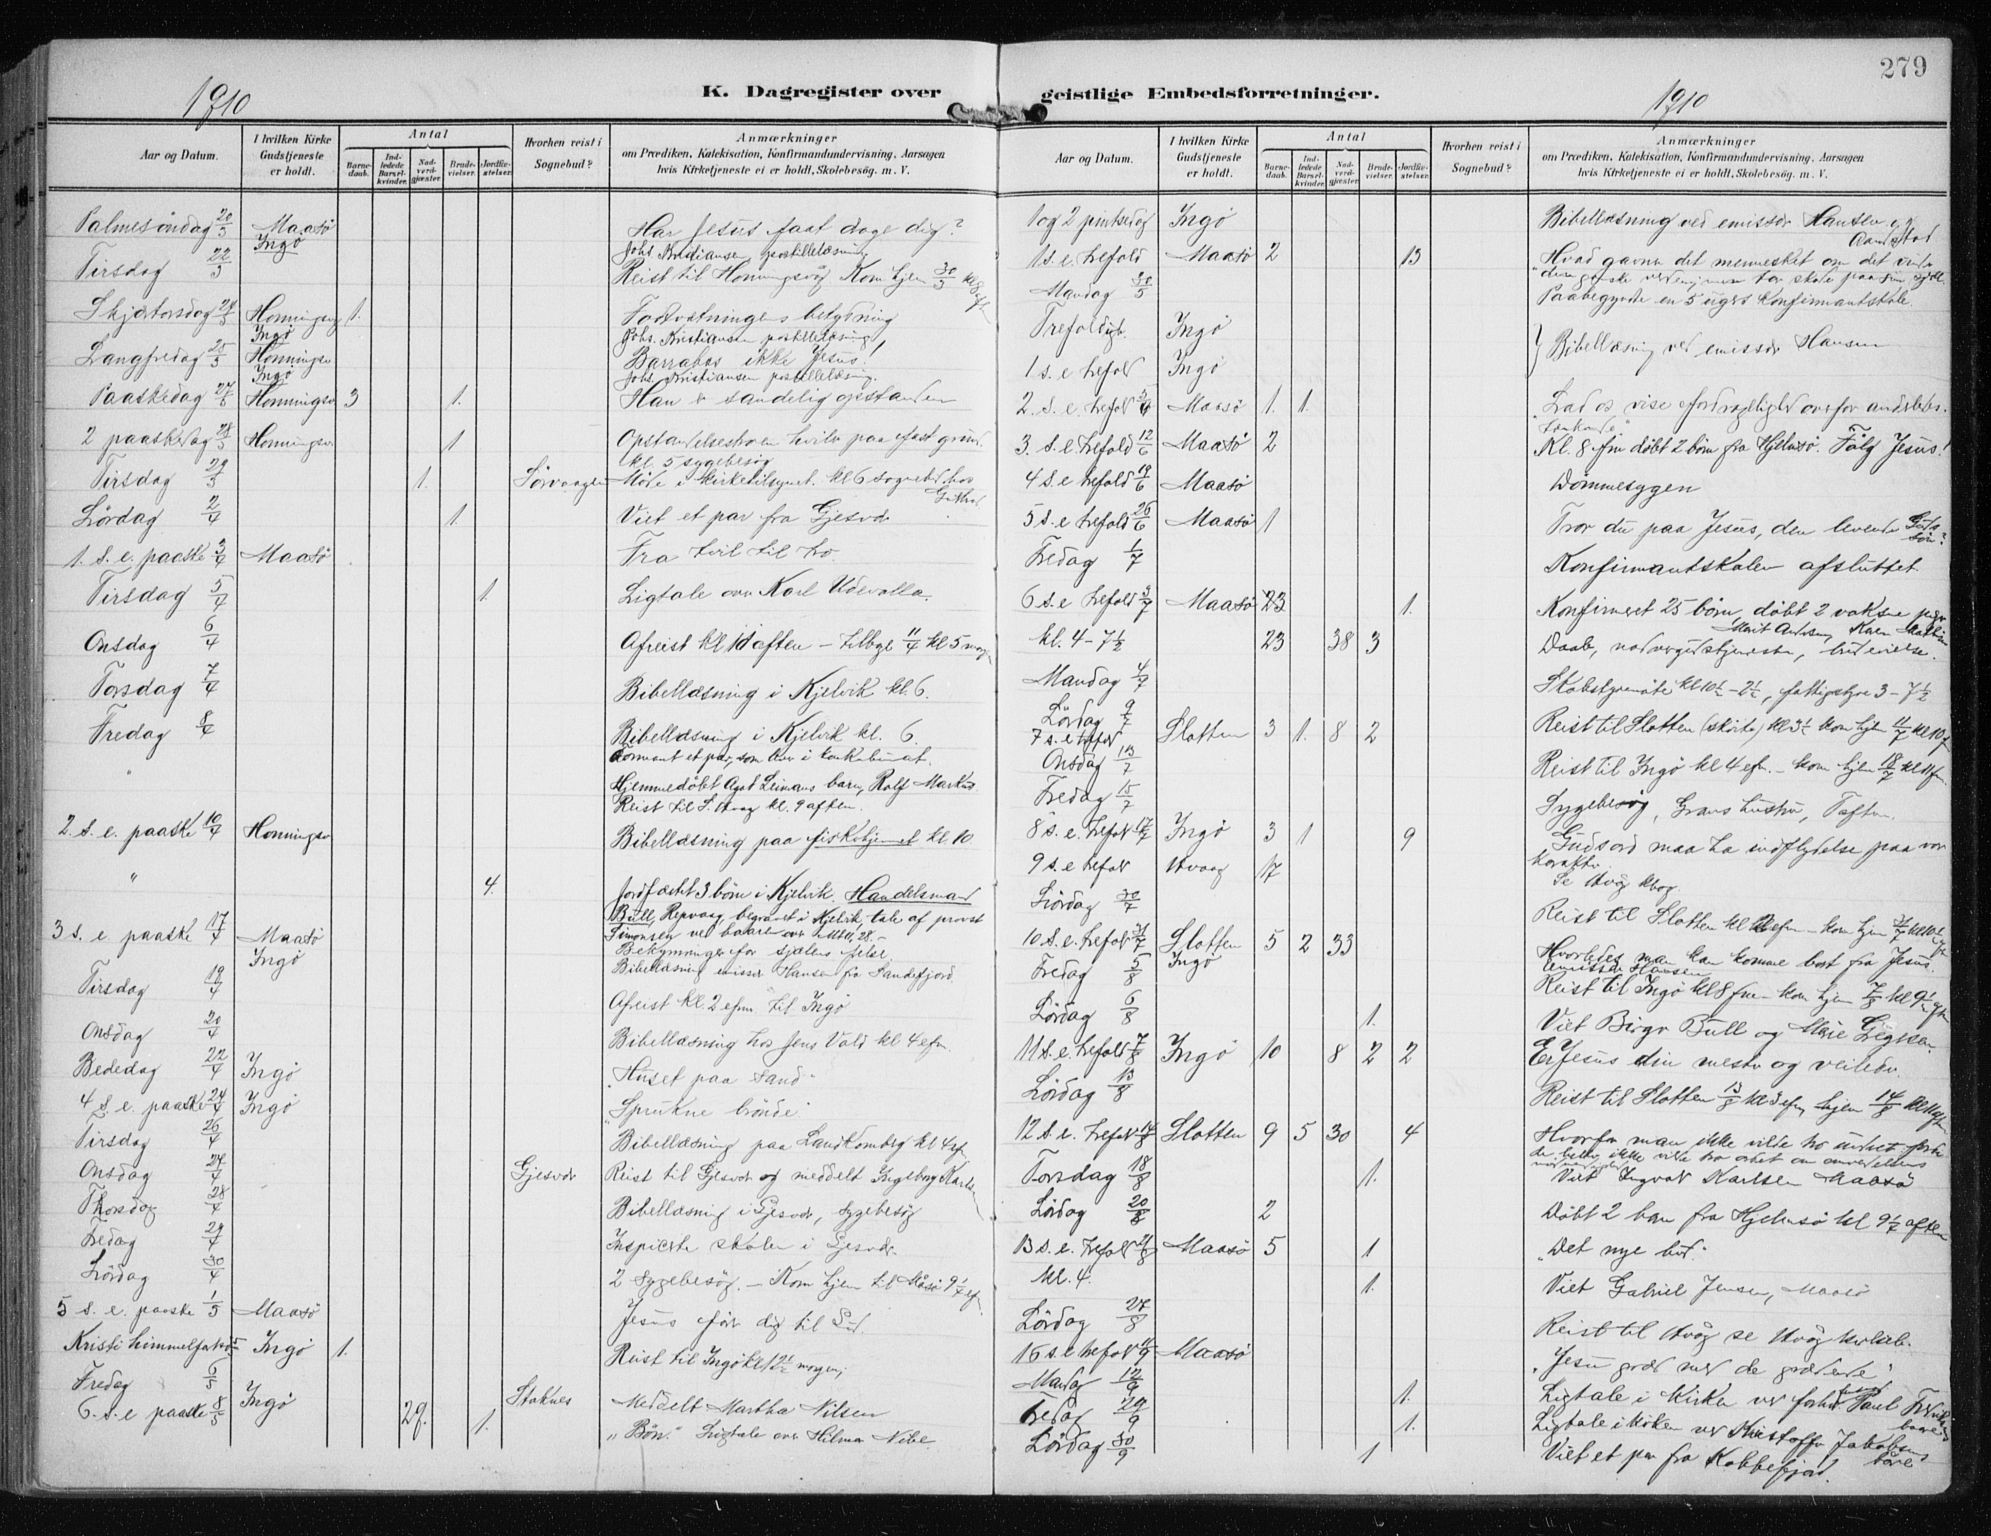 279
1910
K. Dagregister over
geistlige Embedsforretninger.
1910
Aar og Datum.
I hvilken Kirke Gudstjeneste er holdt.
Antal
Barnedaab.
Indledede Barselkvinder.
Nadverdgjæster.
Brudevielser.
Jordfæstelser.
Hvorhen reist i Sognebud?
Anmærkninger
om Prædiken, Katekisation, Konfirmandundervisning, Aarsagen
hvis Kirketjeneste ei er holdt, Skolebesøg. m. V.
Palmesöndag 20/3 Maasö Har Jesus faat dage dig?
Ingö Johs. Kristiansen postillelæsning
Tirsdag 22/3 Reist til Honningsvåg. Kom hjem 30/3 kl 8
Skjærtorsdag 24/3 Honningsv 1. Fodvætningens betydning
Ingö Johs. Kristiansen postillelæsning
Langfredag 25/3 Honningsv Barrabas ikke Jesus!
Ingö Johs. Kristiansen postillelæsning.
Paaskedag 27/3 Honningsv 3 1. Han er sandelig opstanden
2 paaskedag 28/3 Honningsv. 1 Opstandelsestroen hviler paa fast grund.
kl. 5 sygebesög
Tirsdag 29/3 1. Møde i kirketilsynet. kl 6 sognebud hos
Lördag 2/4 1. Viet et par fra Gjesvær
1. s. e. paaske 3/4 Maasö Fra tvil til tro.
Tirsdag 5/4 1. Ligtale over Karl Udevolla.
Onsdag 6/4 Afreist kl 10 aften – tilbage 11/4 kl 5 morgen
Torsdag 7/4 Bibellæsning i Kjelvik kl. 6.
Fredag 8/4 Bibellæsning i Kjelvik kl. 6.
Formant et par, som lever i konkubinat.
" Hjemmedöbt Agot Leimans barn, Rolf Markus
Reist til S. kl. 9 aften.
2. s. e. paaske 10/4 Honningsv Bibellæsning paa fiskehjemmet kl 10
" 4. Jordfæstet 3 börn i Kjelvik. Handelsmand
Bull, Repvaag, begravet i Kjelvik, tale af provst
Simonsen ved baaren
3 s. e. paaske 17/4 Maasö Bekymringer for sjælens frelse.
Ingö Bibellæsning emissær Hansen fra Sandefjord
Tirsdag 19/4 Afreist kl. 2 efm til Ingö
Onsdag 20/4 Bibellæsning hos Jens Vold kl 4 efm.
Bededag 22/4 Ingö "Huset paa Sand"
4 s. e. paaske 24/4 Ingö "Sprukne brönde"
Tirsdag 26/4 Bibellæsning paa kl 4 efm
Onsdag 27/4 Gjesvær Reist til Gjesvær og meddelt Ingeborg Karlsen
Thorsdag 28/4 Bibellæsning i Gjesvær, sygebesög
Fredag 29/4 Inspicerte skolen i Gjesvær
Lördag 30/4 2 sygebesög. – Kom hjem til Måsö 9½ efm
5 s. e. paaske 1/5 Maasö Jesus förer dig til Gud.
Kristi himmelfartsd 5/5 Ingö 1. Reist til Ingö kl 12½ morgen,
Fredag 6/5 Stoknes Meddelt Martha Nilsen
6. s. e paaske 8/5 Ingö 29. 1. "Bön." Ligtale over Hilma Nibe
Aar og Datum.
I hvilken Kirke Gudstjeneste er holdt.
Antal
Barnedaab.
Indledede Barselkvinder.
Nadverdgjæster.
Brudevielser.
Jordfæstelser.
Hvorhen reist i Sognebud?
Anmærkninger
om Prædiken, Katekisation, Konfirmandundervisning, Aarsagen
hvis Kirketjeneste ei er holdt, Skolebesøg. m. V.
1 og 2 pinksedag Ingö Bibellæsning ved emissær Hansen og
1 s. e. trefold Maasö 2 13 Hvad gavner det mennesket om det vinder
den ganske verden, men tar skade paa sin sjæl
Mandag 30/5 Paabegyndte en 5 ugers konfirmantskole.
Trefoldigh. Ingö
Bibellæsning ved emissær Hansen
1 s. e trefol Ingö
2. s. e. trefold 5/6 Maasö 1. 1. Lad os vise fordragelighed overfor anderledes-
tænkende"
3. s. e trefold 12/6 Maasö 2 Kl. 8 fm döbt 2 börn fra Hjelmsö. Fölg Jesus!
4 s. e trefold 19/6 Maasö Dömmesygen
5 s. e trefold 26/6 Maasö 1 Tror du paa Jesus, den levende Guds sön?
Fredag 1/7 Konfirmantskolen afsluttet
6 s. e trefold 3/7 Maasö 23 1. Konfirmeret 25 börn, döbt 2 voksne piger
kl. 4 – 7½ 23 38 3 Daab, nadvergudstjeneste, brudevielse.
Mandag 4/7 Skolestyremöte kl 10½ – 2½, fattigstyre 3 – 7½
Lördag 9/7 Reist til Slotten (sköite) kl 3½ kom hjem 11/7 kl 10 f
7 s. e trefol Slotten 3 1. 8 2
Onsdag 13/7 Reist til Ingö kl 4 efm. – kom hjem 18/7 kl 11 fm.
Fredag 15/7 Sygebesög,
8 s. e. trefol 17/7 Ingö 3 1 9 Gudsord maa ha indflydelse paa vor
karakter
9 s. e trefol Havaag 17 Se kbog.
Lördag 30/7 Reist til Slotten kl efm – kom hjem
10. s. e. trefol 31/7 Slotten 5 2 33 Hvorledes man kan komme bort fra Jesus.
Ingö emissær Hansen
Fredag 5/8 Reist til Ingö kl 8 fm – kom hjem 7/8 kl 9½
Lördag 6/8 1. Viet Birger Bull og Marie
11 s. e. trefol 7/8 Ingö 10 8 2 2 Er Jesus din mester og veileder.
Lördag 13/8 Reist til Slotten 13/8 kl 3 efm, hjem 14/8 kl 11
12 s. e. trefol 14/8 Slotten 9 5 30 4 Hvorfor man ikke vilde tro
Torsdag 18/8 1. Viet Ingvar Karlsen Maasö
Lördag 20/8 2 Döbt 2 barn fra Hjelmsö kl 9½ aften
13 s. e. trefol 21/8 Maasö 5 1 "Det nye bud"
Kl. 4. 1. Viet Gabriel Jensen, Maasö
Lördag 27/8 Reist til Havög se Havög kirkeb.
16 s. e trefol 11/9 Maasö "Jesu graad med de grædende"
Mandag 12/9 1. Ligtale i kirken ved Paul
Fredag 29/9 1. Ligtale i kirken ved Kristoffer Jakobsens
baare
Lördag 30/9 1 Viet et par fra Kobbefjord.